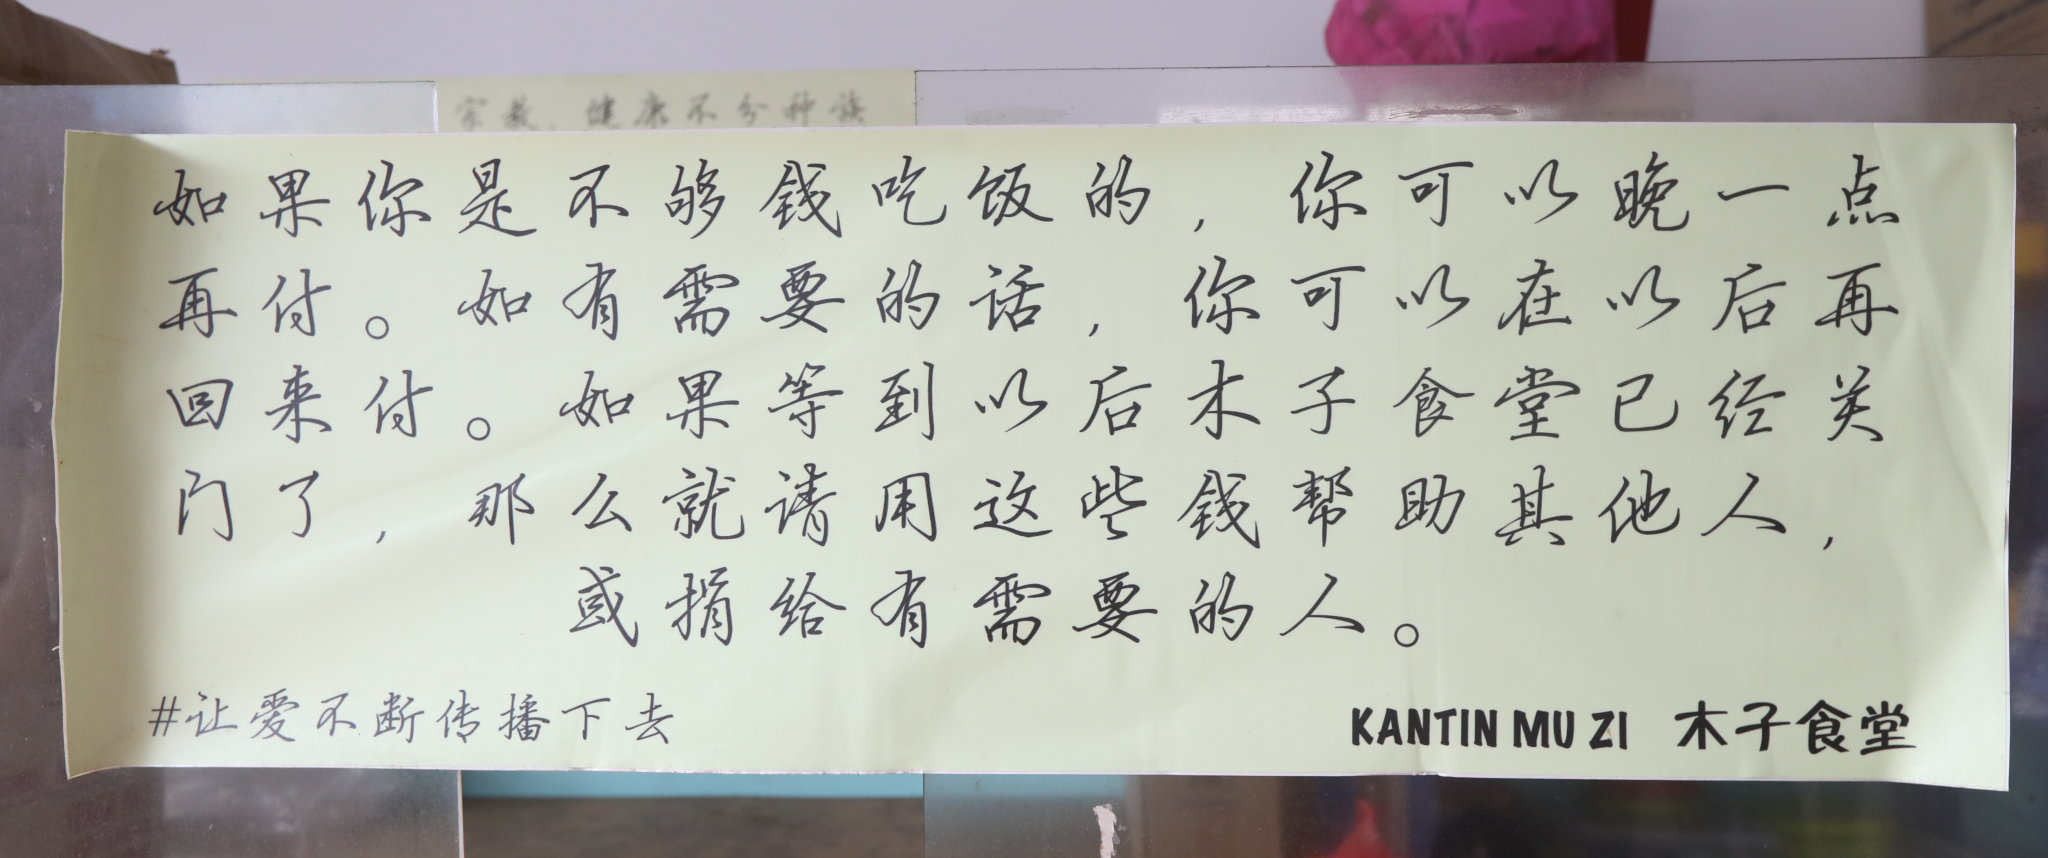 宗教、健康不分种族
如果你是不够钱吃饭的，你可以晚一点
再付。如有需要的话，你可以在以后再
回来付。如果等到以后木子食堂已经关
门了，那么就请用这些钱帮助其他人，
或捐给有需要的人。
#让爱不断传播下去
KANTIN MU ZI 木子食堂